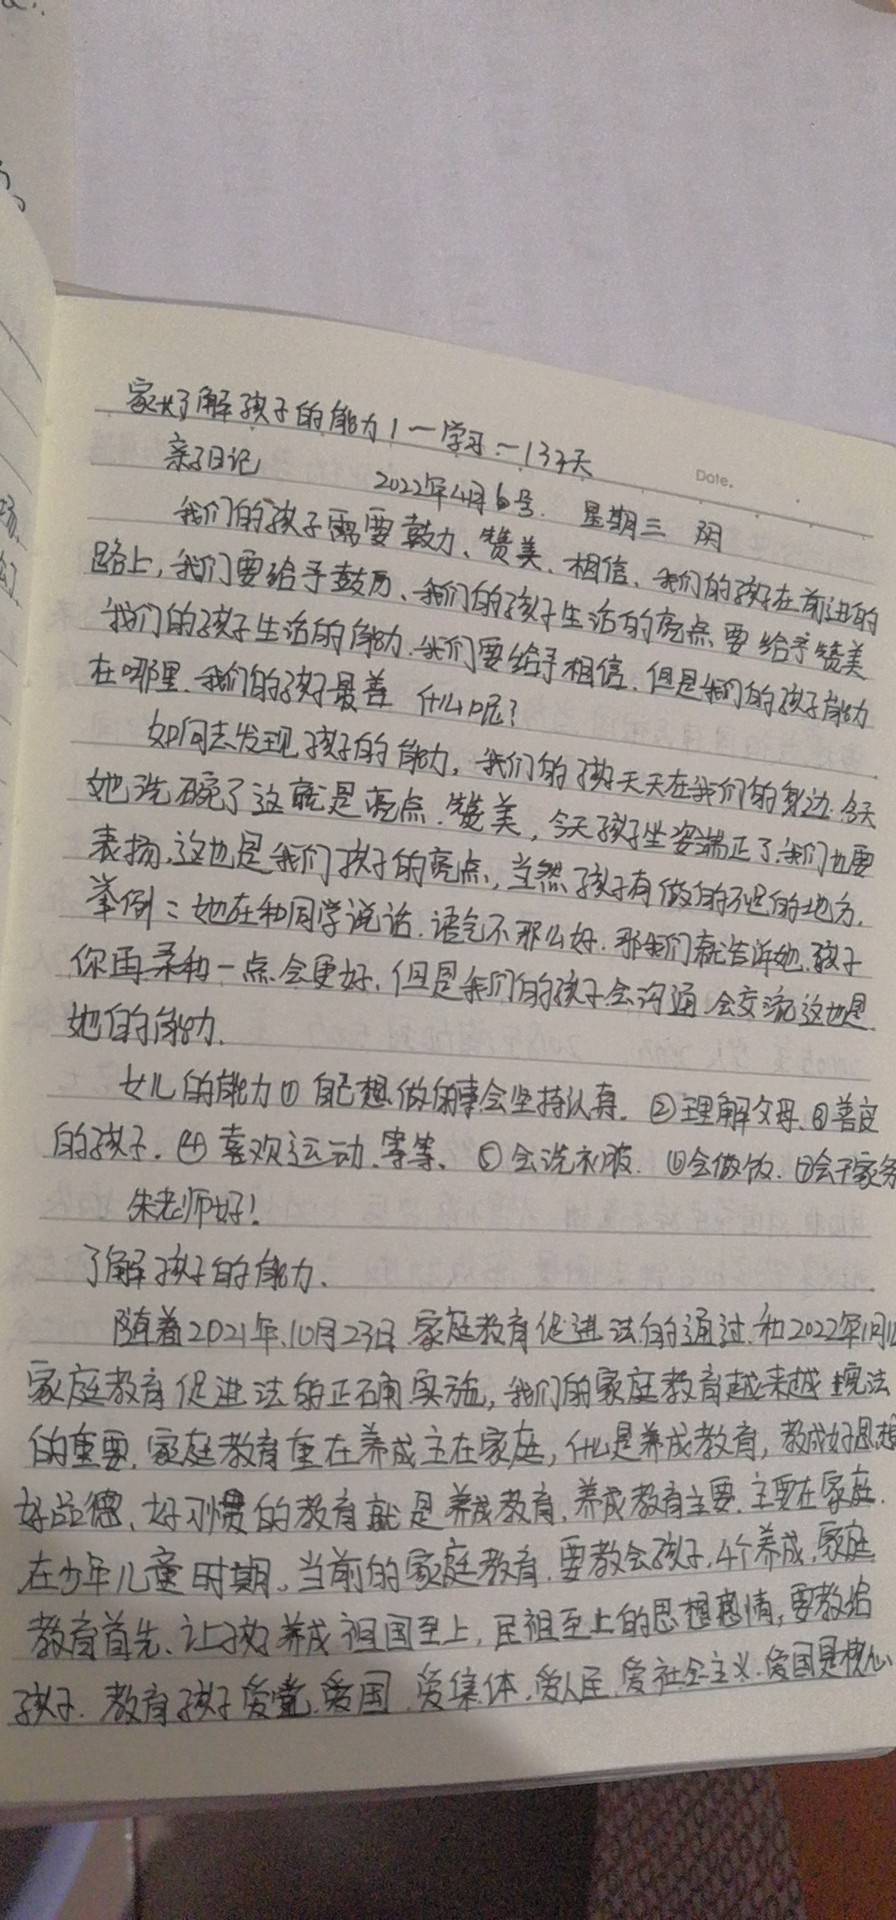 家长了解孩子的能力1一学习:一137天
Date.
亲子日记 2022年4月6号. 星期三 阴
我们的孩子需要鼓力、赞美、相信、我们的孩子在前进的
路上,我们要给予鼓历、我们的孩子生活的亮点要给予赞美
我们的孩子生活的能力.我们要给予相信.但是我们的孩子能力
在哪里.我们的孩子最善 什么呢?
如何去发现孩子的能力,我们的孩子天天在我们的身边.今天
她洗碗了这就是亮点.赞美,今天孩子坐姿端正了.我们也要
表扬.这也是我们孩子的亮点,当然孩子有做的不足的地方.
举例:她在和同学说话.语气不那么好.那我们就告诉她.孩子
你再柔和一点会更好.但是我们的孩子会沟通.会交流这也是
她的能力.
女儿的能力①自己想做的事会坚持认真.②理解父母.③善良
的孩子.④喜欢运动.等等.⑤会洗衣服.⑥会做饭.⑦会干家务
朱老师好!
了解孩子的能力.
随着2021年.10月23日.家庭教育促进法的通过.和2022年1月1
家庭教育促进法的正确实施,我们的家庭教育越来越 法
的重要.家庭教育重在养成主在家庭,什么是养成教育,教成好思想
好品德、好习惯的教育就是养成教育.养成教育主要.主要在家庭.
在少年儿童时期。当前的家庭教育.要教会孩子.4个养成.家庭
教育首先、让孩子养成祖国至上,民祖至上的思想感情,要教给
孩子.教育孩子爱党.爱国.爱集体.爱人民.爱社会主义.爱国是核心